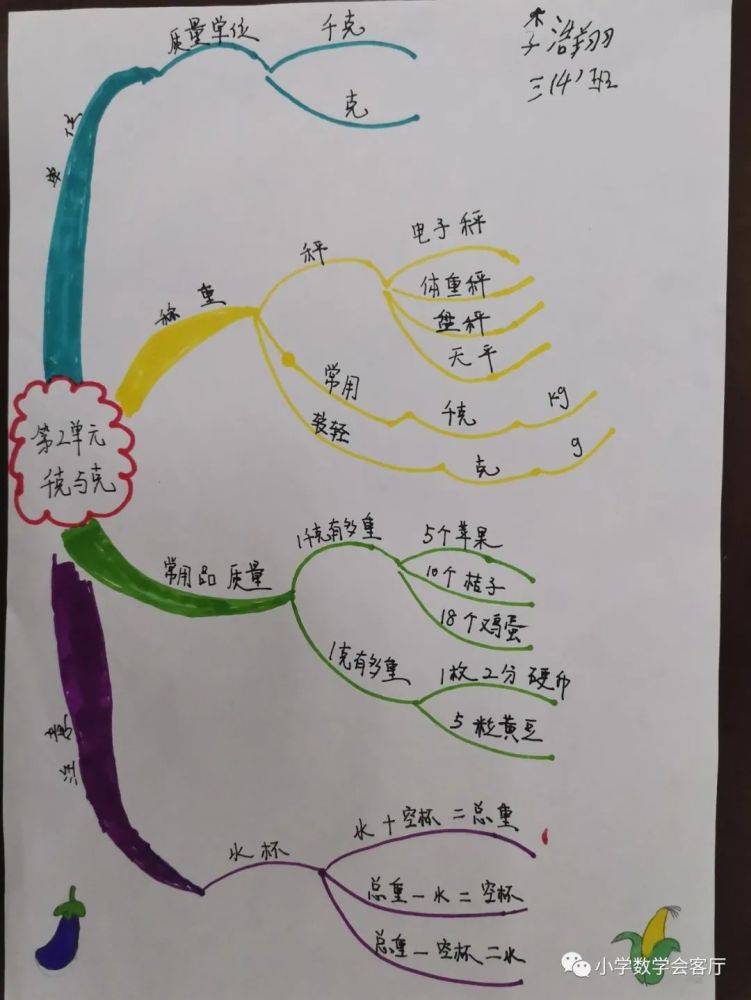 李浩翔
三(4)班
质量单位
千克
克
单位
称重
秤
电子秤
体重秤
盘秤
天平
常用
千克
kg
较轻
克
g
第2单元
千克与克
常用品质量
1千克有多重
5个苹果
10个桔子
18个鸡蛋
1克有多重
1枚2分硬币
5粒黄豆
水杯
水+空杯=总重
总重-水=空杯
总重-空杯=水
小学数学会客厅